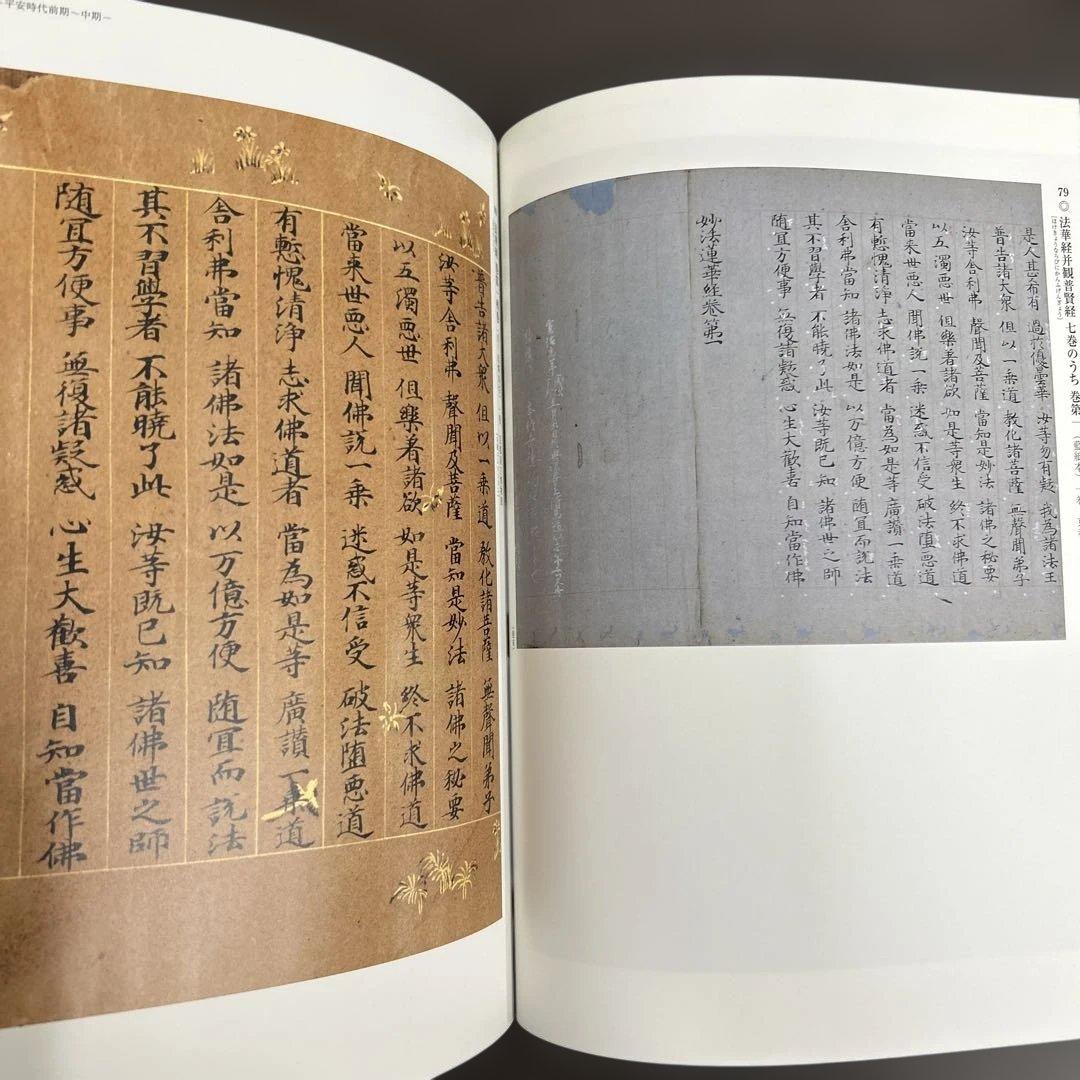 79◎ 法華経并観普賢経 七巻のうち 巻第一 (藍紙本)
(ほけきょうならびにかんふげんぎょう)
是人甚希有 過於優曇華 汝等勿有疑 我為諸法王
普告諸大衆 但以一乗道 教化諸菩薩 無聲聞弟子
汝等舎利弗 聲聞及菩薩 當知是妙法 諸佛之秘要
以五濁悪世 但樂着諸欲 如是等衆生 終不求佛道
當来世悪人 聞佛説一乗 迷惑不信受 破法堕悪道
有慙愧清浄 志求佛道者 當為如是等 廣讃一乗道
舎利弗當知 諸佛法如是 以万億方便 随冝而説法
其不習學者 不能曉了此 汝等既已知 諸佛世之師
随冝方便事 無復諸疑惑 心生大歡喜 自知當作佛
妙法蓮華経巻第一
平安時代前期〜中期〜
普告諸大衆 但以一乗道 教化諸菩薩 無聲聞弟子
汝等舎利弗 聲聞及菩薩 當知是妙法 諸佛之秘要
以五濁悪世 但樂着諸欲 如是等衆生 終不求佛道
當来世悪人 聞佛説一乗 迷惑不信受 破法堕悪道
有慙愧清浄 志求佛道者 當為如是等 廣讃一乗道
舎利弗當知 諸佛法如是 以万億方便 随冝而説法
其不習學者 不能曉了此 汝等既已知 諸佛世之師
随冝方便事 無復諸疑惑 心生大歡喜 自知當作佛